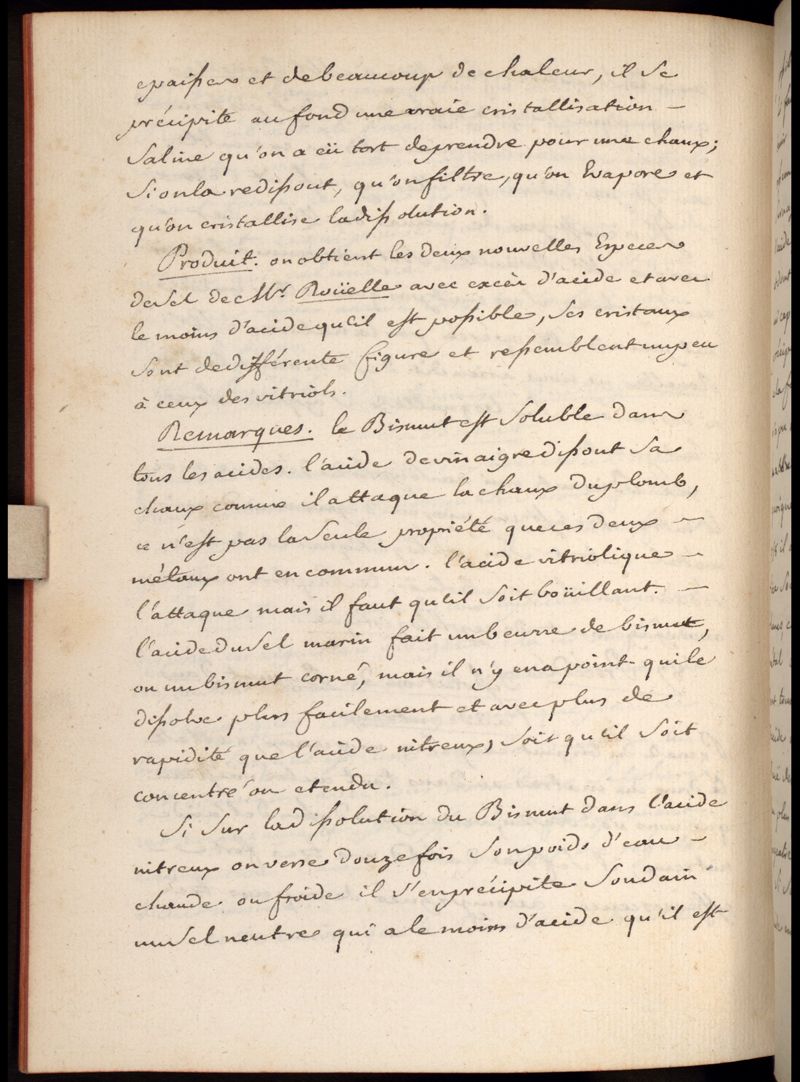 epaisses et de beaucoup de chaleur, il se
précipite au fond une vraie cristallisation –
Saline qu'on a eü tort de prendre pour une chaux;
Si on la redissout, qu'on filtre, qu'on Evapore et
qu'on cristallise la dissolution.
Produit. on obtient les deux nouvelles Especes
de Sel de Mr. Roüelle avec excès d'acide et avec
le moins d'acide qu'il est possible, Ses cristaux
Sont de différente figure et ressemblent un peu
à ceux des vitriols.
Remarques. le Bismut est Soluble dans
tous les acides. l'acide de vinaigre dissout Sa
chaux comme il attaque la chaux du plomb,
ce n'est pas la Seule propriété que ces deux –
métaux ont en commun. l'acide vitriolique –
l'attaque mais il faut qu'il Soit boüillant. –
l'acide du Sel marin fait un beurre de bismut,
ou un bismut corné, mais il n'y en a point qui le
dissolve plus facilement et avec plus de
rapidité que l'acide nitreux, Soit qu'il Soit
concentré ou etendu.
Si Sur la dissolution du Bismut dans l'acide
nitreux on verse douze fois Son poids d'eau –
chaude ou froide il S'en précipite Soudain
un Sel neutre qui a le moins d'acide qu'il est